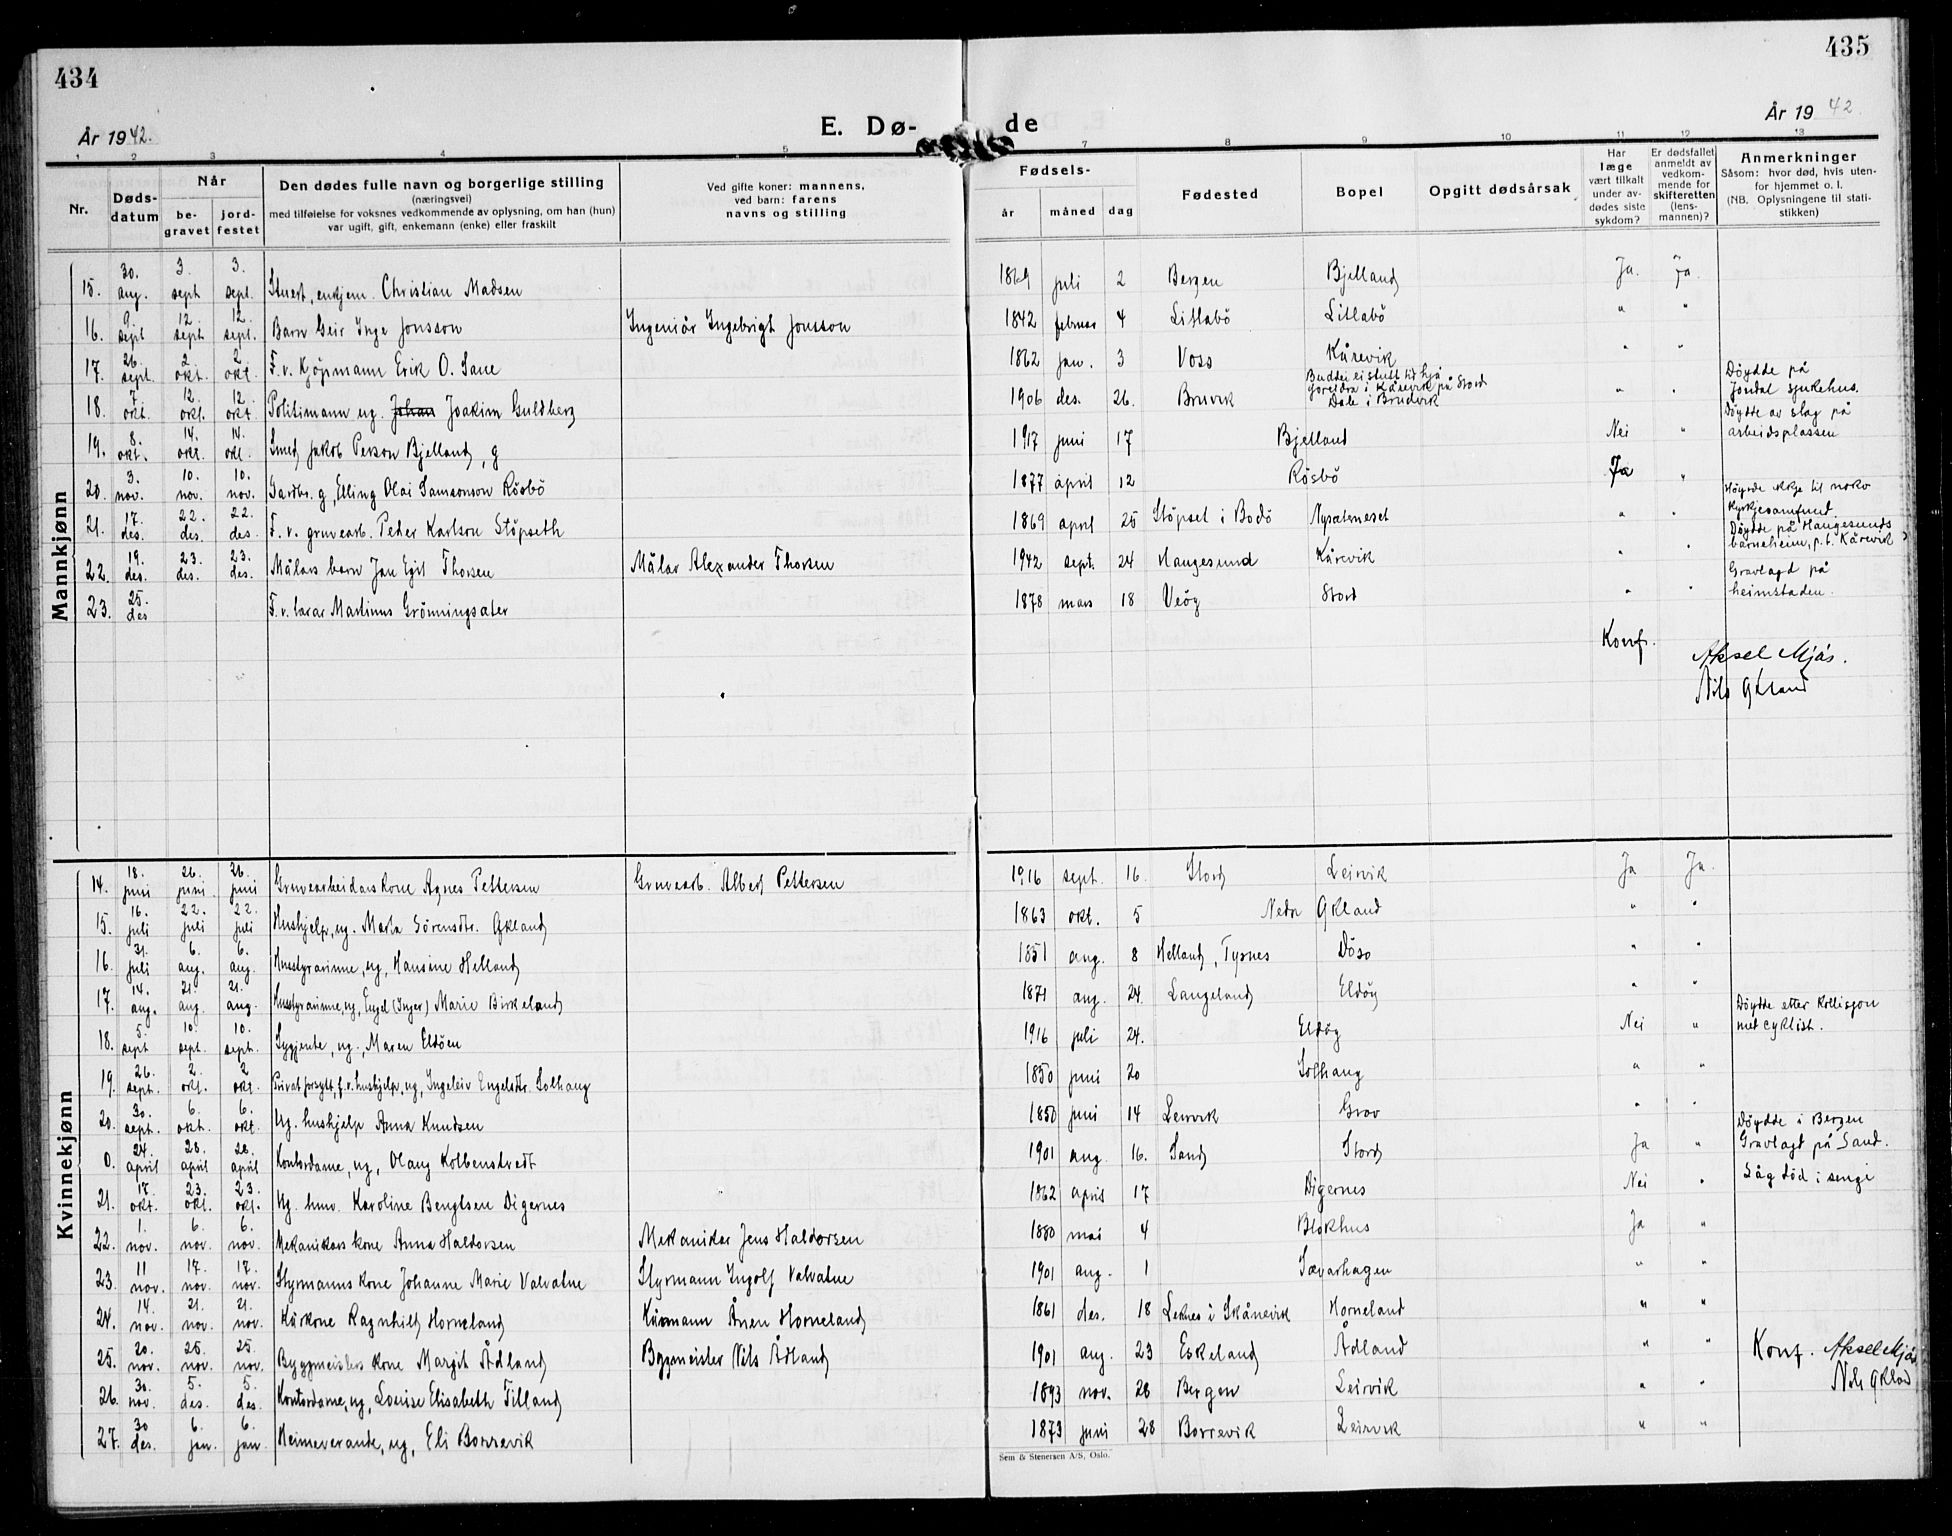 434
435
År 1942.
E. Dø-
de
År 1942.
1 2 3 4 5 7 8 9 10 11 12 13
Nr.
Døds-
datum
Når
be-
gravet
jord-
festet
Den dødes fulle navn og borgerlige stilling
(næringsvei)
med tilføielse for voksnes vedkommende av oplysning, om han (hun)
var ugift, gift, enkemann (enke) eller fraskilt
Ved gifte koner: mannens,
ved barn: farens
navns og stilling
Fødsels-
år måned dag
Fødested
Bopel
Opgitt dødsårsak
Har
læge
vært tilkalt
under av-
dødes siste
sykdom?
Er dødsfallet
anmeldt av
vedkom-
mende for
skifteretten
(lens-
mannen)?
Anmerkninger
Såsom: hvor død, hvis uten-
for hjemmet o. l.
(NB. Oplysningene til stati-
stikken)
Mannkjønn
15. 30. aug. 3. sept 3. sept. Stuert, enkjem. Christian Madsen 1869 juli 2 Bergen Bjelland Ja. Ja.
16. 9. sept 12. sept 12. sept. Barn Geir Inge Jonsson Ingeniör Ingebrigt Jonsson 1842 februar 4 Litlabö Litlabö " "
17. 26. sept. 2. okt. 2 okt. F. v. Kjöpmann Erik O. Sane 1862 jan. 3 Voss Kårevik " "
18. 7. okt. 12. okt. 12. okt. Politimann ug. Johan Joakim Guldberg 1906 des. 26. Bruvik Budde ei stutt tid hjå foreldra i Kårevik på Stord Dale i Bruvik " " Döydde på Jondal sjukehus.
19. 8. okt. 14. okt. 14. okt. Smed Jakob Person Bjelland, g 1917 juni 17 Bjelland Nei " Döydte av slag på arbeidsplassen
20. 3. nov. 10. nov. 10. nov. Gardbr. g, Elling Olai Samsonson Rösbö 1877 april 12 Rösbö Ja "
21. 17. des. 22. des. 22. des. F. v. gruvearb. Peder Karlson Stöpseth 1869 april 25 Stöpset i Bodö Nysæterneset " " Höyrde ikkje til noko kyrkjesamfund.
22. 19. des. 23. des. 23. des. Målars barn Jan Egil Thorsen Målar Alexander Thorsen 1942 sept. 24 Haugesund Kårevik " " Döydde på Haugesunds barneheim, p. t. Kårevik
23. 25. des F. v. lærar Martinus Grönningsæter 1878 mars 18 Veöy Stord " " Gravlagd på heimstaden.
Konf.
Aksel Mjös.
Nils Økland
Kvinnekjønn
14. 18. juni 26. juni 26. juni Gruvearbeidars kone Agnes Pettersen Gruvearb. Albert Pettersen 1916 sept. 16. Stord Leirvik Ja Ja.
15. 16. juli 22. juli 22. juli Hushjelp, ug. Marta Sörensdtr. Økland 1863 okt. 5 Nedr Økland " "
16. 31. juli 6. aug. 6. aug. Husstyrarinne, ug, Hansine Helland 1851 aug. 8 Helland, Tysnes Döso " "
17. 14. aug. 21. aug 21. aug. Husstyrarinne, ug, Engel (Inger) Marie Birkeland 1871 aug. 24. Langeland Eldöy " "
18. 5. sept 10. sept. 10. sept. Sygjente, ug., Maren Eldöen 1916 juli 24. Eldöy Nei " Döydde etter kollisjon med cyklist.
19. 26. sept. 2. okt. 2 okt. Privat forsytt, f. v. hushjelp, ug, Ingeleiv Engelsdtr. Solhaug 1850 juni 20 Solhaug " "
20. 30. sept. 6. okt. 6. okt. Ug. hushjelp Anna Knudsen 1850 juni 14 Leirvik Grov " "
0. 24. april 28. april 28. april Kontordame, ug, Olaug Kolbenstvedt 1901 aug. 16. Sand Stord Ja " Döydde i Bergen Gravlagt på Sand.
21. 17. okt. 23. okt. 23. okt. Ug. husv. Karoline Bengtsen Digernes 1862 april 17 Digernes Nei " Låg död i senga
22. 1. nov. 6. nov. 6. nov. Mekanikars kone Anna Haldorsen Mekanikar Jens Haldorsen 1880 mai 4 Blokhus Ja "
23. 11 nov. 17. nov. 17. nov. Styrmanns kone Johanne Marie Valvatne Styrmann Ingolf Valvatne 1901 aug. 1 Sævarhagen " "
24. 14. nov. 21. nov. 21. nov. Kårkone Ragnhild Horneland Kårmann Ånen Horneland 1861 des. 18 Leknes i Skånevik Horneland " "
25. 20. nov. 25. nov. 25. nov. Byggmeisters kone Margit Ådland Byggmeister Nils Ådland 1901 aug. 23 Eskeland Ådland " "
26. 30. nov. 5. des. 5. des. Kontordame, ug, Louise Elisabeth Tilland 1893 nov. 28 Bergen Leirvik " "
27. 30 des. 6. jan. 6. jan. Heimeverande, ug, Eli Borrevik 1873 juni 28 Borrevik Leirvik " "
Konf. Aksel Mjös
Nils Økland
Sem & Stenersen A/S, Oslo.